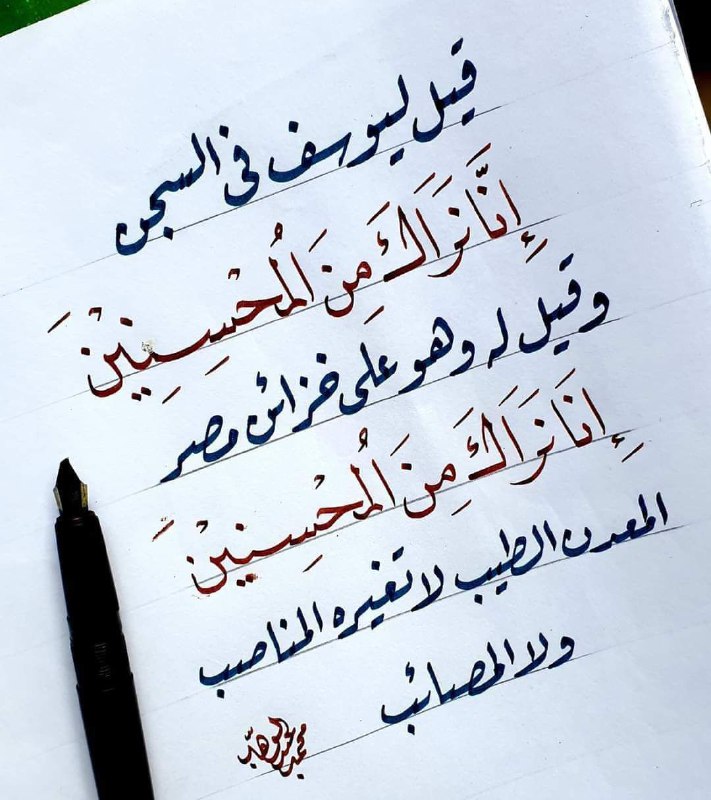 قيل ليوسف في السجن
إِنَّا نَرَاكَ مِنَ الْمُحْسِنِينَ
وقيل له وهو على خزائن مصر
إِنَّا نَرَاكَ مِنَ الْمُحْسِنِينَ
المعدن الطيب لا تغيره المناصب
ولا المصائب